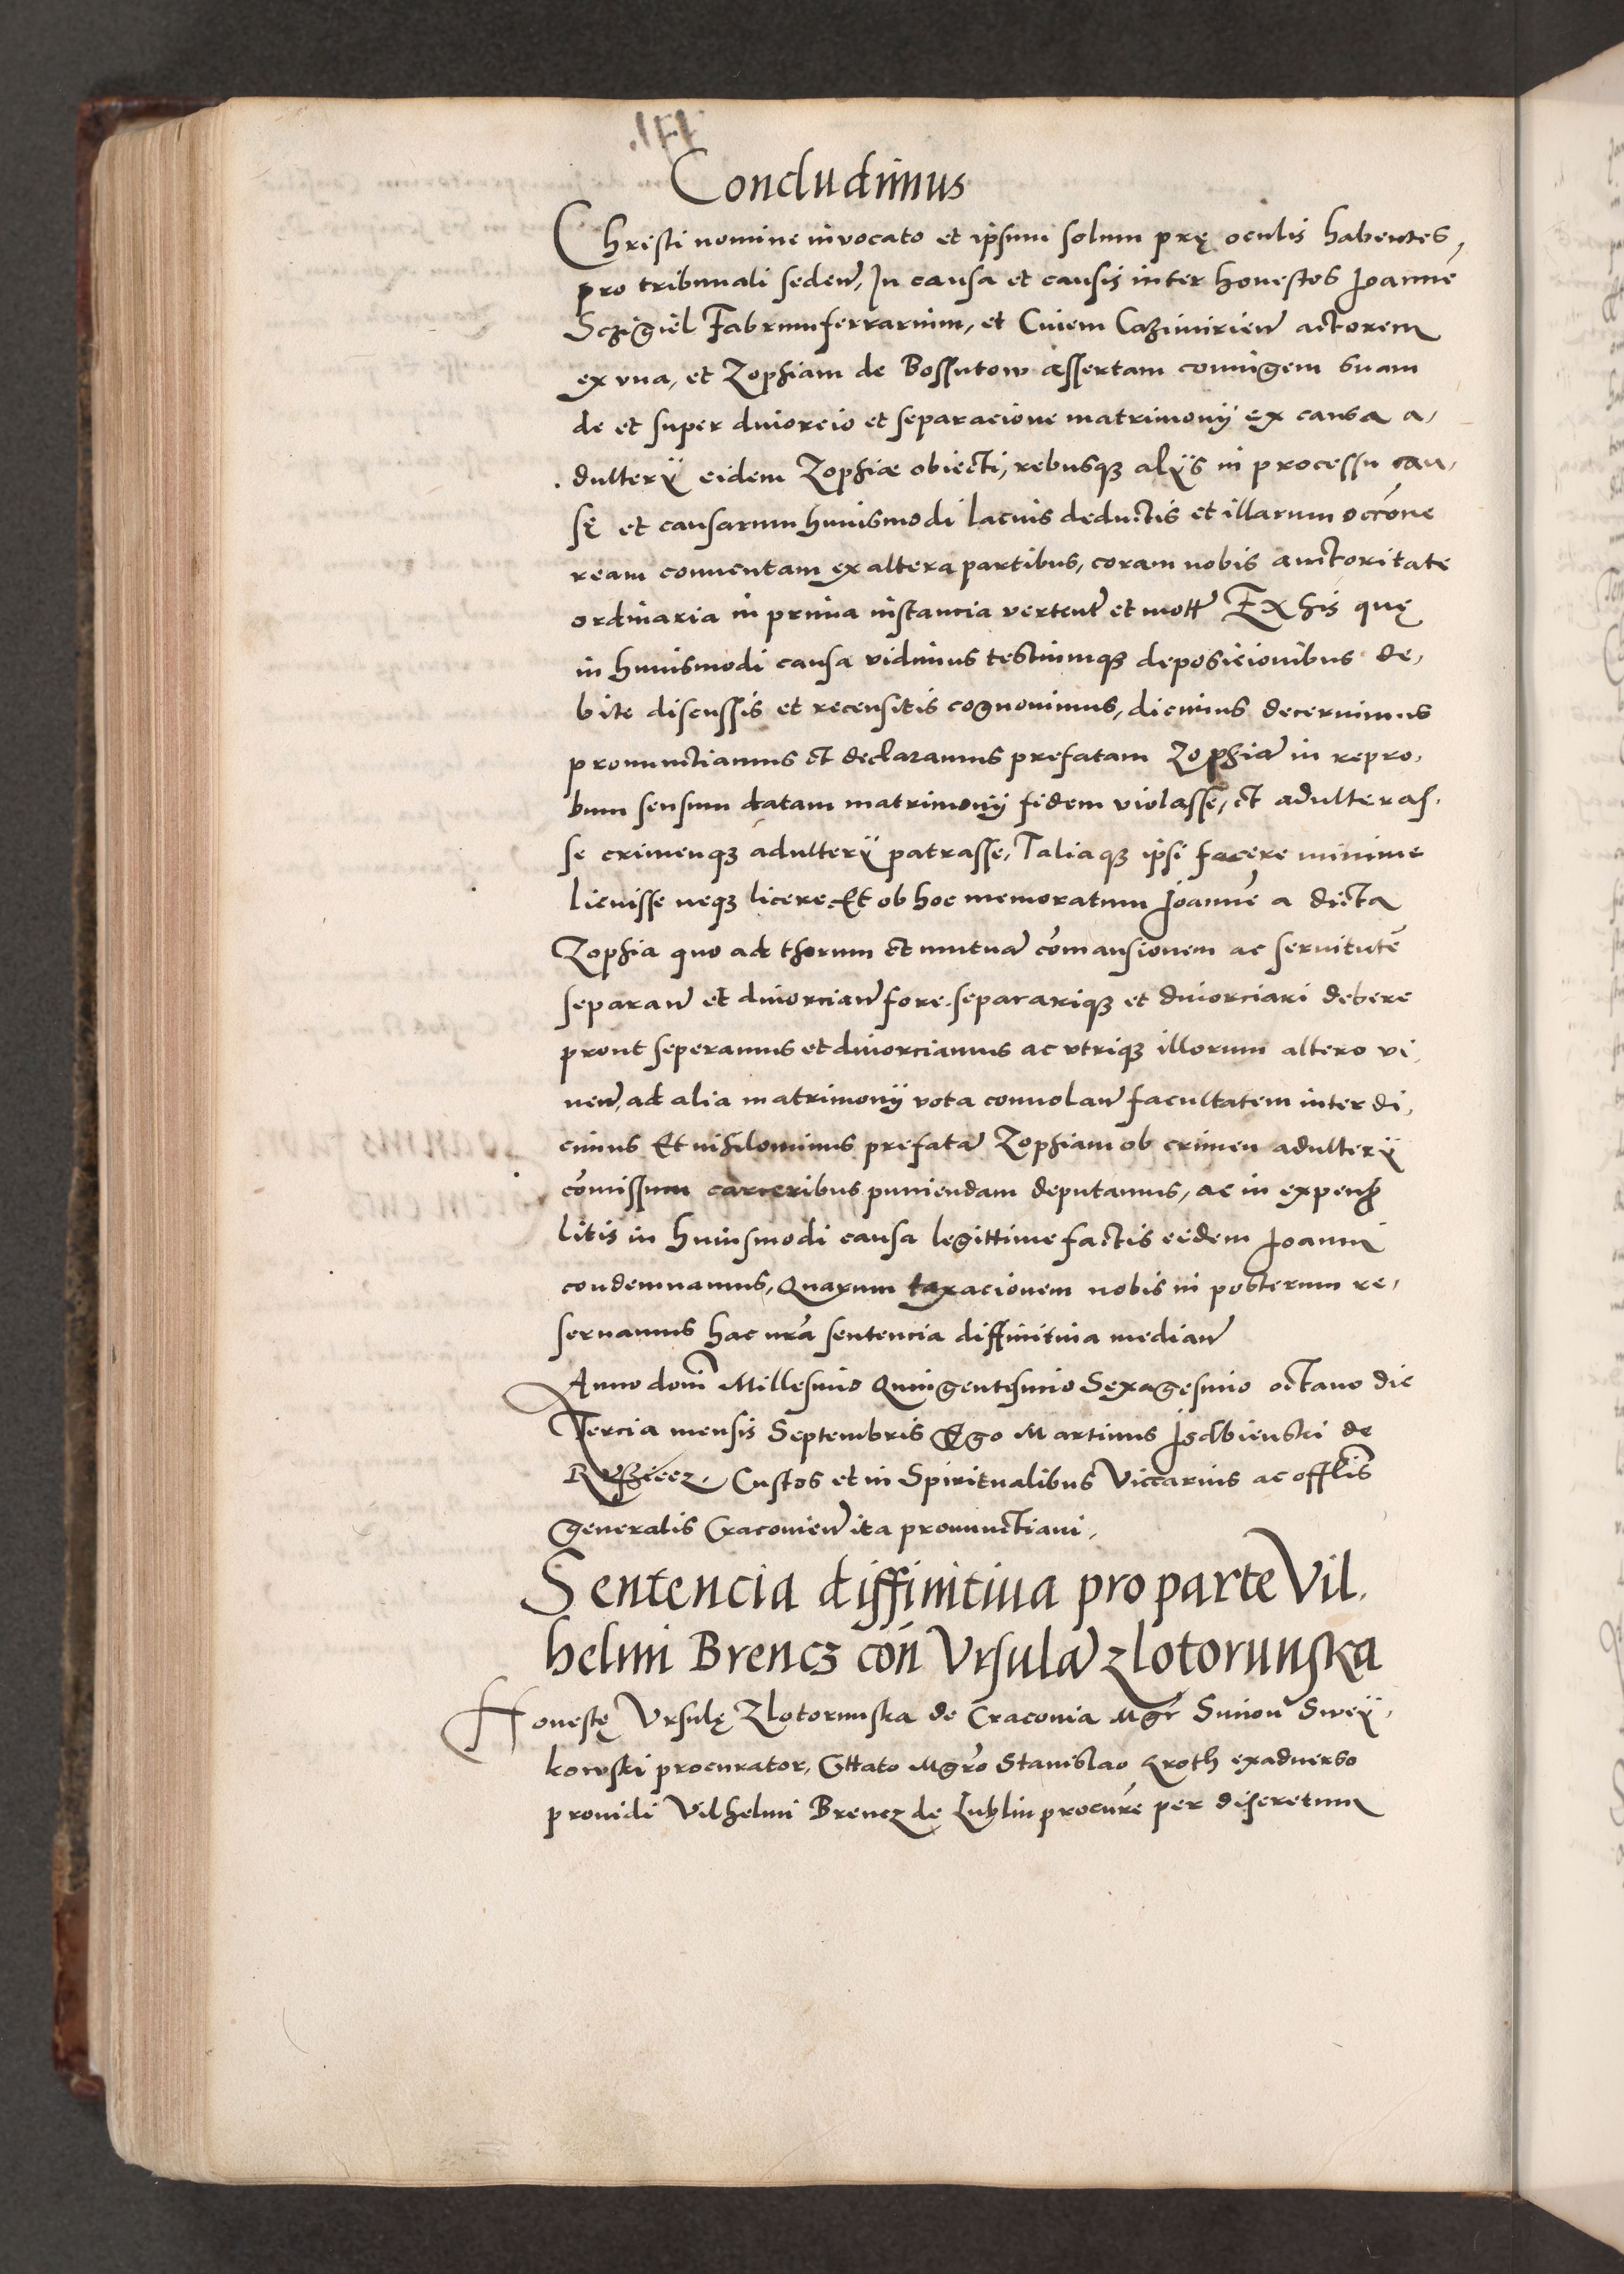 Concludimus
Christi nomine invocato et ipsum solum prę oculis habentes,
pro tribunali seden̄, In causa et causis inter honestos Joannē
Sczigiel Fabrum ferrarium, et Ciuem Cazimirien̄ actorem
ex vna, et Zophiam de Bossutow assertam coniugem suam
de et super diuorcio et separacione matrimonij ex causa a,
dulterÿ eidem Zophiæ obiecti, rebusqꝫ alÿs in processu cau,
sę et causarum huiusmodi lacius deductis et illarum occōne
ream conuentam ex altera partibus, coram nobis auctoritate
ordinaria in prima instancia verten̄ et mott̄ Ex his quę
in huiusmodi causa vidimus testiumqꝫ deposicionibus de,
bite discussis et recensitis cognouimus, dicimus decernimus
pronunctiamus et declaramus prefatam Zophiā in repro,
bum sensum datam matrimonij fidem violasse, et adulteras,
se crimenqꝫ adulterÿ patrasse, Taliaqꝫ ipsi facere minime
licuisse neqꝫ licere Et ob hoc memoratum Joannē a dicta
Zophia quo ad thorum et mutuā cōmansionem ac seruitutē
separan̄ et diuorcian̄ fore. separariqꝫ et diuorciari debere
prout seperamus et diuorciamus ac vtriqꝫ illorum altero vi,
uen̄, ad alia matrimonij vota conuolan̄ facultatem interdi,
cimus Et nihilominus prefatā Zophiam ob crimen adulterÿ
cōmissum carceribus puniendam deputamus, ac in expens̄
litis in huiusmodi causa legittime factis eidem Joanni
condemnamus, Quarum taxacionem nobis in posterum re,
seruamus hac nrā sentencia diffinitiua median̄
Anno domī Millesimo Quingentesimo Sexagesimo octauo die
Tercia mensis Septembris Ego Martinus Isdbienski de
Custos et in Spiritualibus Viccarius ac offlīs
generalis Cracouien̄ ita pronunctiaui,
Sentencia diffinitiua pro parte Vil,
helmi Brencz con̄ Vrsulā Zlotorunska
Honestę Vrsulę Zlotorunska de Cracouia Mgr̄ Simon̄ Swey,
kowski procurator, Cittato Mgrō Stanislao Kroth exaduerso
prouidi Vilhelmi Brencz de Lublin procurē per discretum